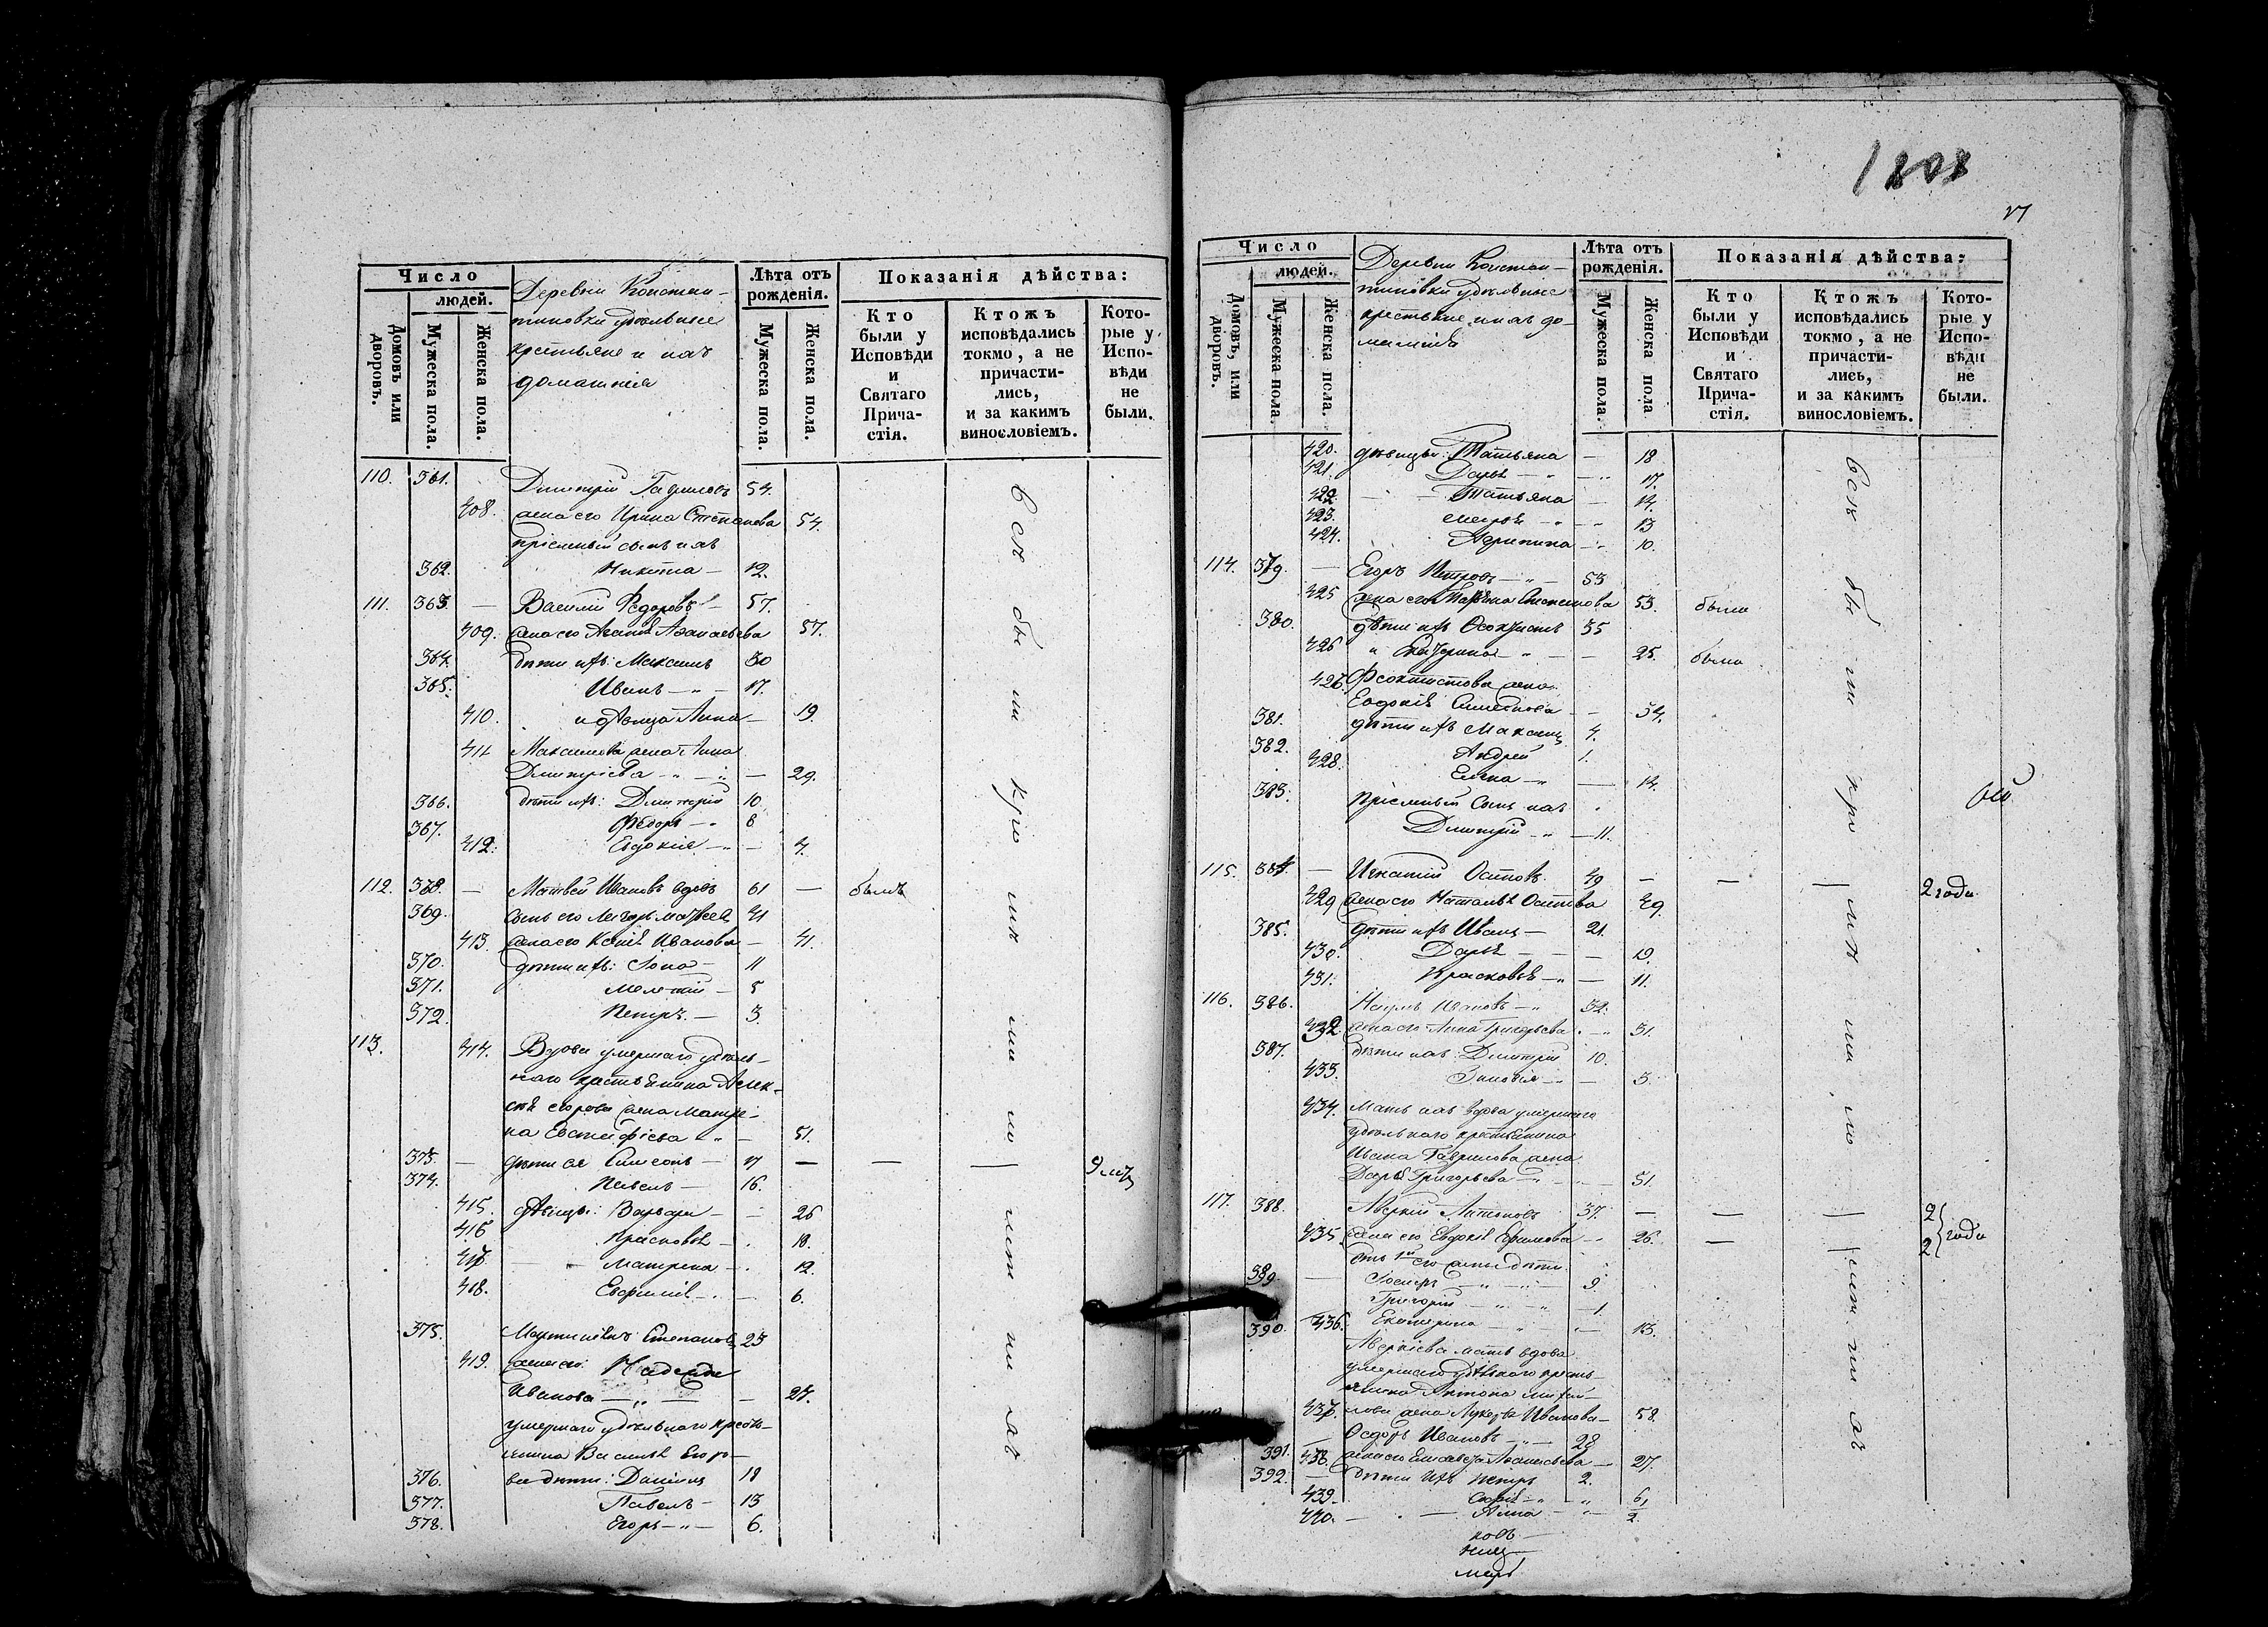 Число
людей.
Домовъ или дворовъ.
Мужеска пола.
Женска пола.
Деревни Констан-
тиновки удѣльные
крестьяне и ихъ
домашнія
Лѣта отъ рожденія.
Мужеска пола.
Женска пола.
Показанія дѣйства:
Кто были у Исповѣди и Святаго Прича-стія.
Ктожъ исповѣдались токмо, а не причасти-лись, и за какимъ винословіемъ.
Кото-рые у Испо-вѣди не были.
110. 361. Дмитрій Гаврилов 54.
408. жена его Ирина Степанова 54.
пріемный сынъ ихъ
362. Никита — 12.
111. 363. — Василій Федоровъ — 57.
409. жена его Агафія Афанасьева 57.
364. дѣти ихъ: Максимъ 30
365. Иванъ — 17.
410. и дѣвица Анна — 19.
411 Максимова жена Анна
Дмитріева — 29.
366. дѣти ихъ: Дмитрій 10
367. Ѳедоръ — 8
412. Евдокія — 4.
112. 368. — Матвей Ивановъ вдовъ 61 — былъ
369. сынъ его 41
413. жена его Ивановна — 41.
370. дѣти ихъ: Іона — 11
371. Мелетій — 5
372. Петръ — 3.
113. 414. Вдова умершаго удѣль-
наго крестьянина Алек-
сѣя Егорова жена Матре-
на Евстифіева — 51.
373. — дѣти ея Симеонъ — 17 — — — 9 лѣтъ
374. Павелъ — 16.
415. дѣвицы: Варвара — 26
416 Прасковія — 18.
417. Матрена — 12.
418. Евфимія — 6.
375. Степановъ 23
419. жена его: Надежда
Иванова — 24.
умершаго удѣльнаго кресть-
янина Василія Егоро-
376. ва дѣти: Даніилъ 18
377. Павелъ — 13
378. Егоръ — 6.
всѣ бы ли кро мѣ ма ло лѣт ни хъ
1808
17
Число
людей.
Домовъ, или дворовъ.
Мужеска пола.
Женска пола.
Деревни Констан-
тиновки удѣльные
крестьяне и ихъ до-
машнія
Лѣта отъ рожденія.
Мужеска пола.
Женска пола
Показанія дѣйства:
Кто были у Исповѣди и Святаго Прича-стія.
Ктожъ исповѣдались токмо, а не причасти-лись, и за какимъ винословіемъ.
Кото-рые у Испо-вѣди не были.
420. дѣвицы: Татьяна — 18
421. Дарья — 17.
422. Татьяна — 14.
423. — 13
424. Агрипина — 10.
114. 379. — Егоръ Петровъ — 53
425 жена его Степанова 53. была
380. дѣти ихъ Ѳеоктистъ 35
426 и Екатерина — 25. была
426. Ѳеоктистова жена
Евдокія — 34.
381. дѣти ихъ Максимъ 4.
382. Андрей 1.
428. Елена — 14.
383. пріемный сынъ ихъ
Дмитрій — 11.
115. 384. — Игнатій Осиповъ 49 — — — 2 года
429 жена его Наталья 49.
385. дѣти ихъ Иванъ — 21.
430. Дарья — 19.
431. Прасковья — 11.
116. 386. Наумъ Ивановъ — 32.
432. жена его Анна Григорьева 31.
387. дѣти ихъ: Дмитрій 10.
433. Зиновія — 3.
434. Мать ихъ вдова умершаго
удѣльнаго крестьянина
Ивана Гаврилова жена
Дарья Григорьева — 51.
117. 388. Аверкій Антоновъ 37. — — — 2
435. жена его Евдокія Ефимова — 26. — — 2 года
отъ 1й его жены дѣти
389. — Іосифъ — 9.
Григорій — 1.
390. 436. Екатерина — 13.
Аверкіева мать вдова
умершаго удѣльнаго кресть-
янина Антона Михай-
437. лова жена Лукерья Иванова — 58.
— Ѳедоръ Ивановъ — 28
391. 438. жена его Елисавета Афанасьева — 27.
392. — дѣти ихъ Петръ 2.
439. Софія — 6
440. Анна — 2.
всѣ бы ли кро мѣ ма ло лѣт ни хъ